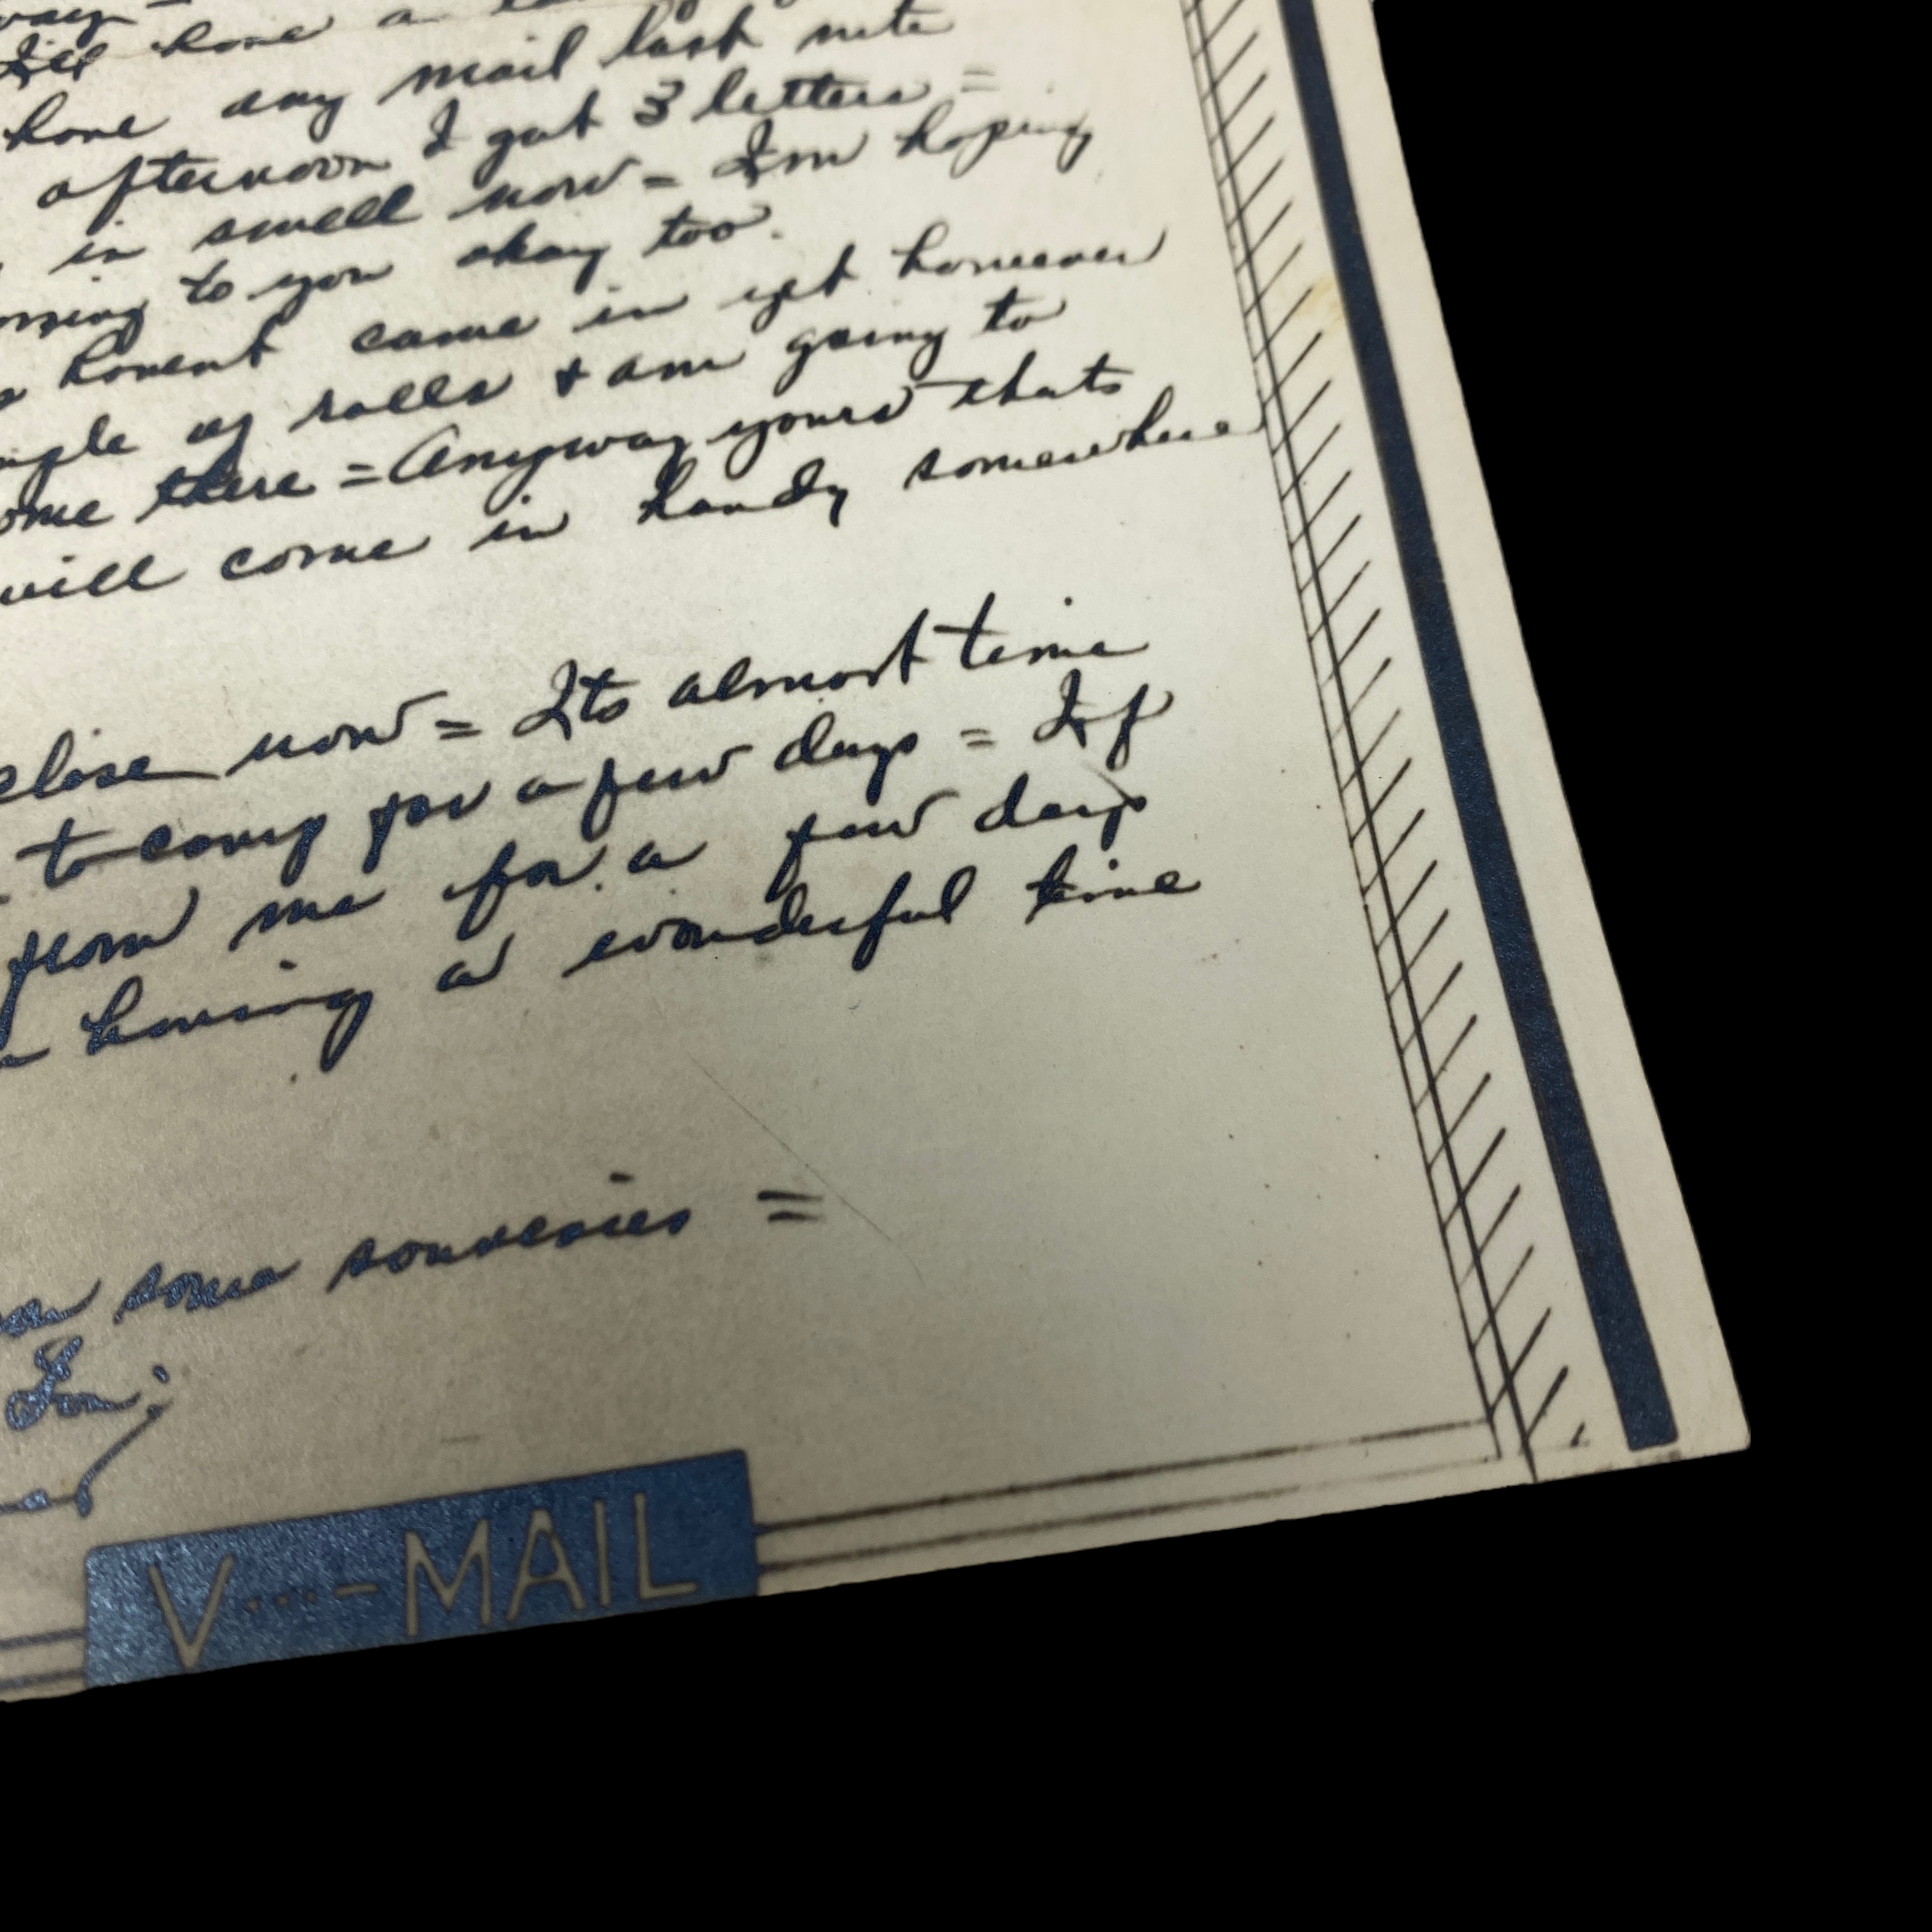 way =
I'll have a
have any mail last nite
afternoon I got 3 letters =
in swell now = Im hoping
to you okay too.
havent came in yet however
of rolls & am going to
there = Anyway yours thats
will come in handy somewhere
close now = Its almost time
to camp for a few days = If
from me for a few days
having a wonderful time
some souveries =
V...-MAIL